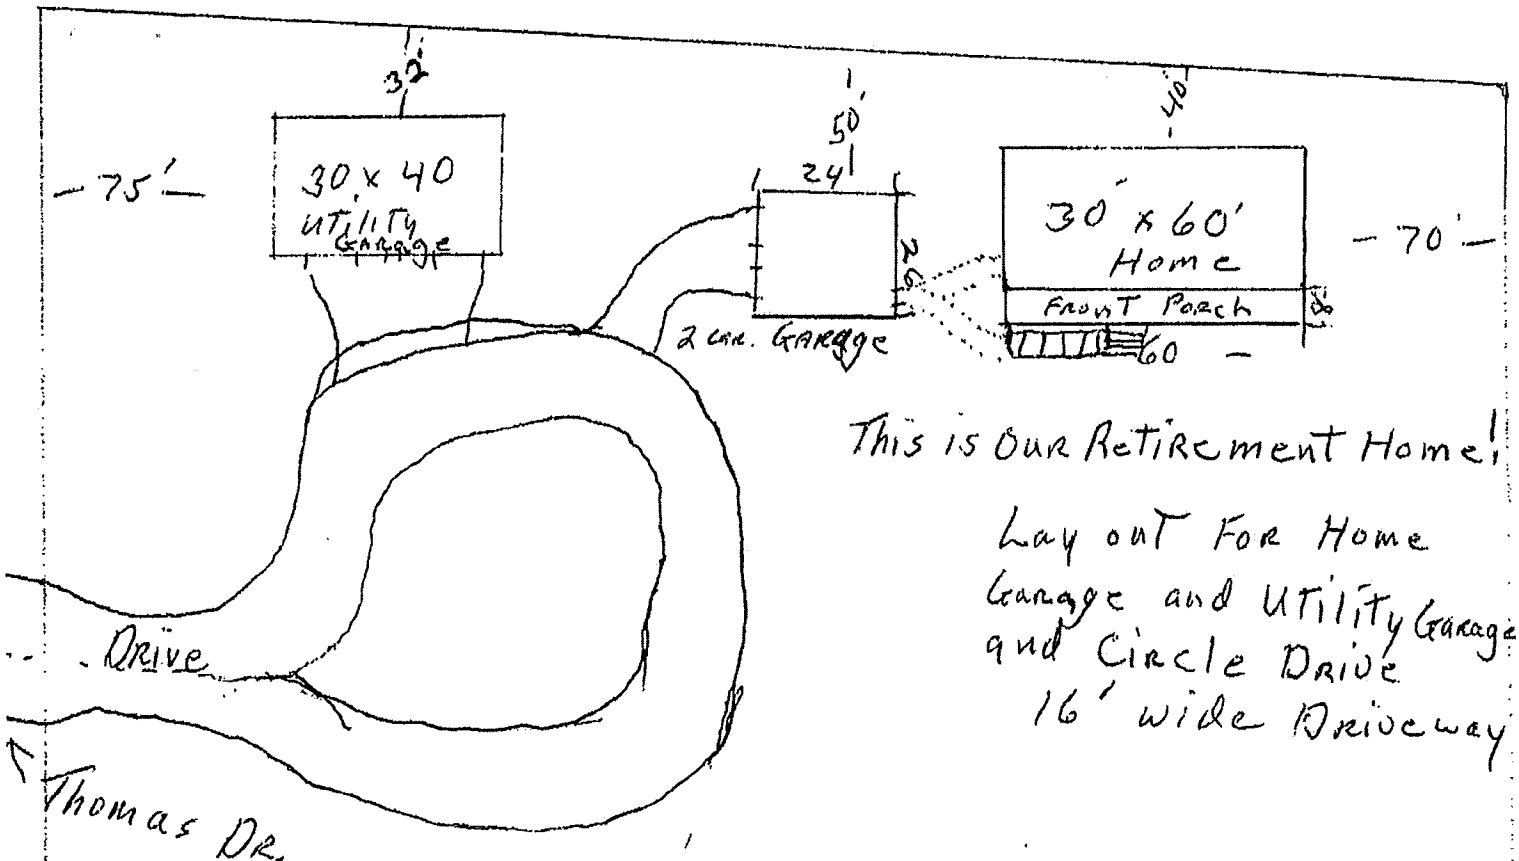 32'
50'
40'
24
- 75' -
30 x 40
UTiliTy
GARAge
26
30' x 60'
Home
- 70' -
FRonT PoRch
8'
2 CAR. GARAge
60 -
This is OuR ReTiRemenT Home!
Lay ouT FoR Home
Garage and UTiliTy Garage
and CiRcle DRive
16' wide DRiveway
DRive
Thomas DR.